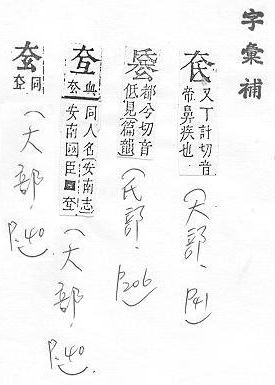 字彙補
又丁計切音
帝鼻疾也
(大部, P.41)
都兮切音
低見篇韻
(氏部, P.206)
與
同人名安南志
安南國臣
(大部, P.40)
同
(大部, P.40)